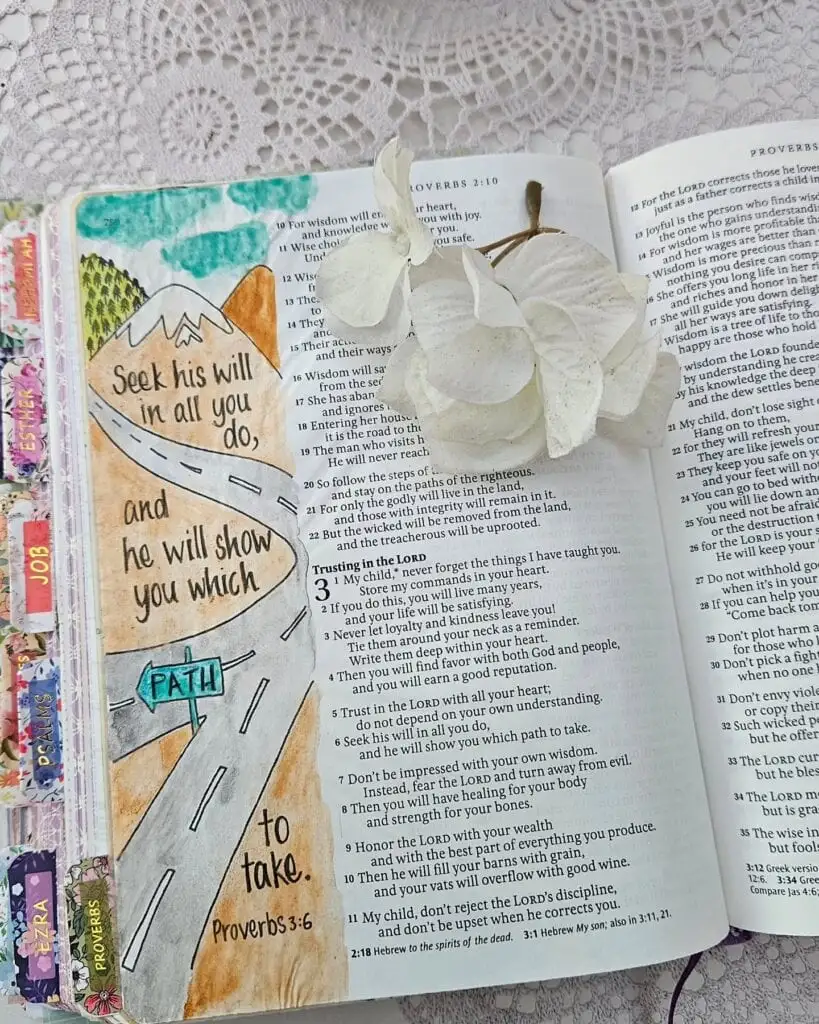 NEHEMIAH
ESTHER
JOB
PSALMS
EZRA
PROVERBS
Seek his will
in all you
do,
and
he will show
you which
PATH
to
take.
Proverbs 3:6
PROVERBS 2:10
10 For wisdom will en ur heart,
and knowledge w you with joy.
11 Wise cho you.
Und you safe.
12 Wis
13 The
to
14 They
and
15 Their act
and their ways
16 Wisdom will sa
from the se
17 She has aban
and ignores
18 Entering her house
it is the road to th
19 The man who visits h
He will never reach
20 So follow the steps of
and stay on the paths of the righteous.
21 For only the godly will live in the land,
and those with integrity will remain in it.
22 But the wicked will be removed from the land,
and the treacherous will be uprooted.
Trusting in the LORD
3 1 My child,* never forget the things I have taught you.
Store my commands in your heart.
2 If you do this, you will live many years,
and your life will be satisfying.
3 Never let loyalty and kindness leave you!
Tie them around your neck as a reminder.
Write them deep within your heart.
4 Then you will find favor with both God and people,
and you will earn a good reputation.
5 Trust in the LORD with all your heart;
do not depend on your own understanding.
6 Seek his will in all you do,
and he will show you which path to take.
7 Don't be impressed with your own wisdom.
Instead, fear the LORD and turn away from evil.
8 Then you will have healing for your body
and strength for your bones.
9 Honor the LORD with your wealth
and with the best part of everything you produce.
10 Then he will fill your barns with grain,
and your vats will overflow with good wine.
11 My child, don't reject the LORD's discipline,
and don't be upset when he corrects you.
2:18 Hebrew to the spirits of the dead. 3:1 Hebrew My son; also in 3:11, 21.
PROVERBS
12 For the LORD corrects those he love
just as a father corrects a child in
13 Joyful is the person who finds wisd
the one who gains understandi
14 For wisdom is more profitable tha
and her wages are better than
15 Wisdom is more precious than r
nothing you desire can compa
16 She offers you long life in her ri
and riches and honor in her
17 She will guide you down deligh
all her ways are satisfying.
Wisdom is a tree of life to tho
happy are those who hold
wisdom the LORD founde
by understanding he crea
By his knowledge the deep
and the dew settles bene
21 My child, don't lose sight
Hang on to them,
22 for they will refresh your
They are like jewels on
23 They keep you safe on yo
and your feet will not
24 You can go to bed witho
you will lie down an
25 You need not be afraid
or the destruction t
26 for the LORD is your s
He will keep your
27 Do not withhold goo
when it's in your
28 If you can help you
"Come back tom
29 Don't plot harm a
for those who l
30 Don't pick a fight
when no one h
31 Don't envy viole
or copy their
32 Such wicked pe
but he offer
33 The LORD cur
but he bles
34 The LORD mo
but is gra
35 The wise in
but fools
3:12 Greek versio
12:6. 3:34 Gree
Compare Jas 4:6;